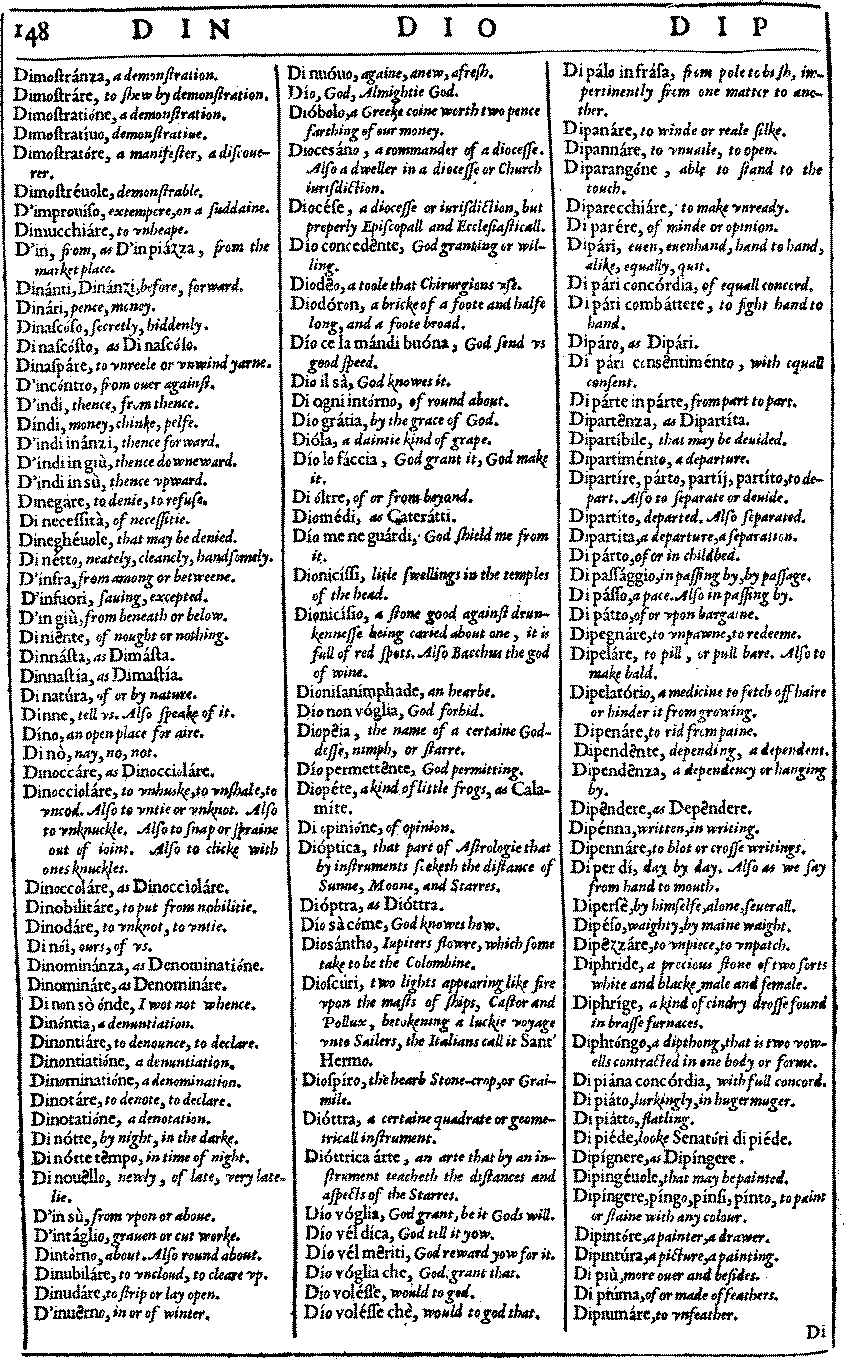 148 DIN DIO DIP
Dimoſtránza, a demonſtration.
Dimoſtráre, to ſhew by demonſtration.
Dimoſtratióne, a demonſtration.
Dimoſtratíuo, demonſtratiue.
Dimoſtratóre, a manifeſter, a diſcoue-
rer.
Dimoſtréuole, demonſtrable.
D'improuíſo, extempere, on a ſuddaine.
Dimucchiáre, to vnheape.
D'in, from, as D'in piázza, from the
market place.
Dinánti, Dinánzi, before, forward.
Dinári, pence, money.
Dinaſcóſo, ſecretly, hiddenly.
Di naſcóſto, as Di naſcóſo.
Dinaſpáre, to vnreele or vnwind yarne.
D'incóntro, from ouer againſt.
D'indi, thence, from thence.
Díndi, money, chinke, pelfe.
D'indi inánzi, thence forward.
D'indi in giù, thence downeward.
D'indi in sù, thence vpward.
Dinegáre, to denie, to refuſe.
Di neceſſità, of neceſſitie.
Dineghéuole, that may be denied.
Di nétto, neately, cleanely, handſomely.
D'infra, from among or betweene.
D'infuori, ſauing, excepted.
D'in giù, from beneath or below.
Di niênte, of nought or nothing.
Dinnáſta, as Dimáſta.
Dinnaſtía, as Dimaſtía.
Di natúra, of or by nature.
Dinne, tell vs. Alſo ſpeake of it.
Díno, an open place for aire.
Di nò, nay, no, not.
Dinoccáre, as Dinoccioláre.
Dinoccioláre, to vnhuske, to vnſhale, to
vncod. Alſo to vntie or vnknot. Alſo
to vnknuckle. Alſo to ſnap or ſpraine
out of ioint. Alſo to clicke with
ones knuckles.
Dinoccoláre, as Dinoccioláre.
Dinobilitáre, to put from nobilitie.
Dinodáre, to vnknot, to vntie.
Di nói, ours, of vs.
Dinominánza, as Denominatióne.
Dinomináre, as Denomináre.
Di non sò ónde, I wot not whence.
Dinóntia, a denuntiation.
Dinontiáre, to denounce, to declare.
Dinontiatióne, a denuntiation.
Dinominatióne, a denomination.
Dinotáre, to denote, to declare.
Dinotatióne, a denotation.
Di nótte, by night, in the darke.
Di nótte têmpo, in time of night.
Di nouêllo, newly, of late, very late-
lie.
D'in sù, from vpon or aboue.
D'intáglio, grauen or cut worke.
Dintórno, about. Alſo round about.
Dinubiláre, to vncloud, to cleare vp.
Dinudáre, to ſtrip or lay open.
D'inuêrno, in or of winter.
Di nuóuo, againe, anew, afreſh.
Dío, God, Almightie God.
Dióbolo, a Greeke coine worth two pence
farthing of our money.
Diocesáno, a commander of a dioceſſe.
Alſo a dweller in a dioceſſe or Church
iuriſdiction.
Diocéſe, a dioceſſe or iuriſdiction, but
properly Epiſcopall and Eccleſiaſticall.
Dío concedênte, God granting or wil-
ling.
Diodêo, a toole that Chirurgions vſe.
Diodóron, a bricke of a foote and halfe
long, and a foote broad.
Dío ce la mándi buóna, God ſend vs
good ſpeed.
Dío il sà, God knowes it.
Di ogni intórno, of round about.
Dío grátia, by the grace of God.
Dióla, a daintie kind of grape.
Dío lo fáccia, God grant it, God make
it.
Di óltre, of or from beyond.
Diomédi, as Caterátti.
Dío me ne guárdi, God ſhield me from
it.
Dioniciſſi, litle ſwellings in the temples
of the head.
Dioniciſio, a ſtone good againſt drun-
kenneſſe being caried about one, it is
full of red ſpots. Alſo Bacchus the god
of wine.
Dioniſanimphade, an hearbe.
Dío non vóglia, God forbid.
Diopêia, the name of a certaine God-
deſſe, nimph, or ſtarre.
Dío permettênte, God permitting.
Diopéte, a kind of little frogs, as Cala-
míte.
Di opinióne, of opinion.
Dióptica, that part of Aſtrologie that
by inſtruments ſeeketh the diſtance of
Sunne, Moone, and Starres.
Dióptra, as Dióttra.
Dío sà cóme, God knowes how.
Diosántho, Iupiters flowre, which ſome
take to be the Colombine.
Dioſcuri, two lights appearing like fire
vpon the maſts of ſhips, Caſtor and
Pollux, betokening a luckie voyage
vnto Sailers, the Italians call it Sant'
Hermo.
Dioſpiro, the hearb Stone-crop, or Grai-
mile.
Dióttra, a certaine quadrate or geome-
tricall inſtrument.
Dióttrica árte, an arte that by an in-
ſtrument teacheth the diſtances and
aſpects of the Starres.
Dío vóglia, God grant, be it Gods will.
Dío vél díca, God tell it yow.
Dío vél mêriti, God reward yow for it.
Dío vóglia che, God grant that.
Dío voléſſe, would to god.
Dío voléſſe chè, would to god that.
Di pálo in fráſa, from pole to buſh, im-
pertinently from one matter to ano-
ther.
Dipanáre, to winde or reale ſilke.
Dipannáre, to vnuaile, to open.
Diparangóne, able to ſtand to the
touch.
Diparecchiáre, to make vnready.
Di parére, of minde or opinion.
Dipári, euen, euenhand, hand to hand,
alike, equally, quit.
Di pári concórdia, of equall concord.
Di pári combáttere, to fight hand to
hand.
Dipáro, as Dipári.
Di pári conſêntiménto, with equall
conſent.
Di párte in párte, from part to part.
Dipartênza, as Dipartíta.
Dipartíbile, that may be deuided.
Dipartiménto, a departure.
Dipartíre, párto, partíj, partíto, to de-
part. Alſo to ſeparate or deuide.
Dipartíto, departed. Alſo ſeparated.
Dipartíta, a departure, a ſeparation.
Di párto, of or in childbed.
Di paſſággio, in paſſing by, by paſſage.
Di páſſo, a pace. Alſo in paſſing by.
Di pátto, of or vpon bargaine.
Dipegnáre, to vnpawne, to redeeme.
Dipeláre, to pill, or pull bare. Alſo to
make bald.
Dipelatório, a medicine to fetch off haire
or hinder it from growing.
Dipenáre, to rid from paine.
Dipendênte, depending, a dependent.
Dipendênza, a dependency or hanging
by.
Dipêndere, as Depêndere.
Dipénna, written, in writing.
Dipennáre, to blot or croſſe writings.
Di per dí, day by day. Alſo as we ſay
from hand to mouth.
Diperſè, by himſelfe, alone, ſeuerall.
Dipéſo, waighty, by maine waight.
Dipêzzáre, to vnpiece, to vnpatch.
Diphride, a precious ſtone of two ſorts
white and blacke, male and female.
Diphríge, a kind of cindry droſſe found
in braſſe furnaces.
Diphtóngo, a dipthong, that is two vow-
ells contracted in one body or forme.
Di piána concórdia, with full concord.
Di piáto, lurkingly, in hugermuger.
Di piátto, flatling.
Di piéde, looke Senatóri di piéde.
Dipígnere, as Dipíngere.
Dipingéuole, that may be painted.
Dipíngere, píngo, pínſi, pínto, to paint
or ſtaine with any colour.
Dipintóre, a painter, a drawer.
Dipintúra, a picture, a painting.
Di più, more ouer and beſides.
Di piúma, of or made of feathers.
Dipiumáre, to vnfeather.
Di